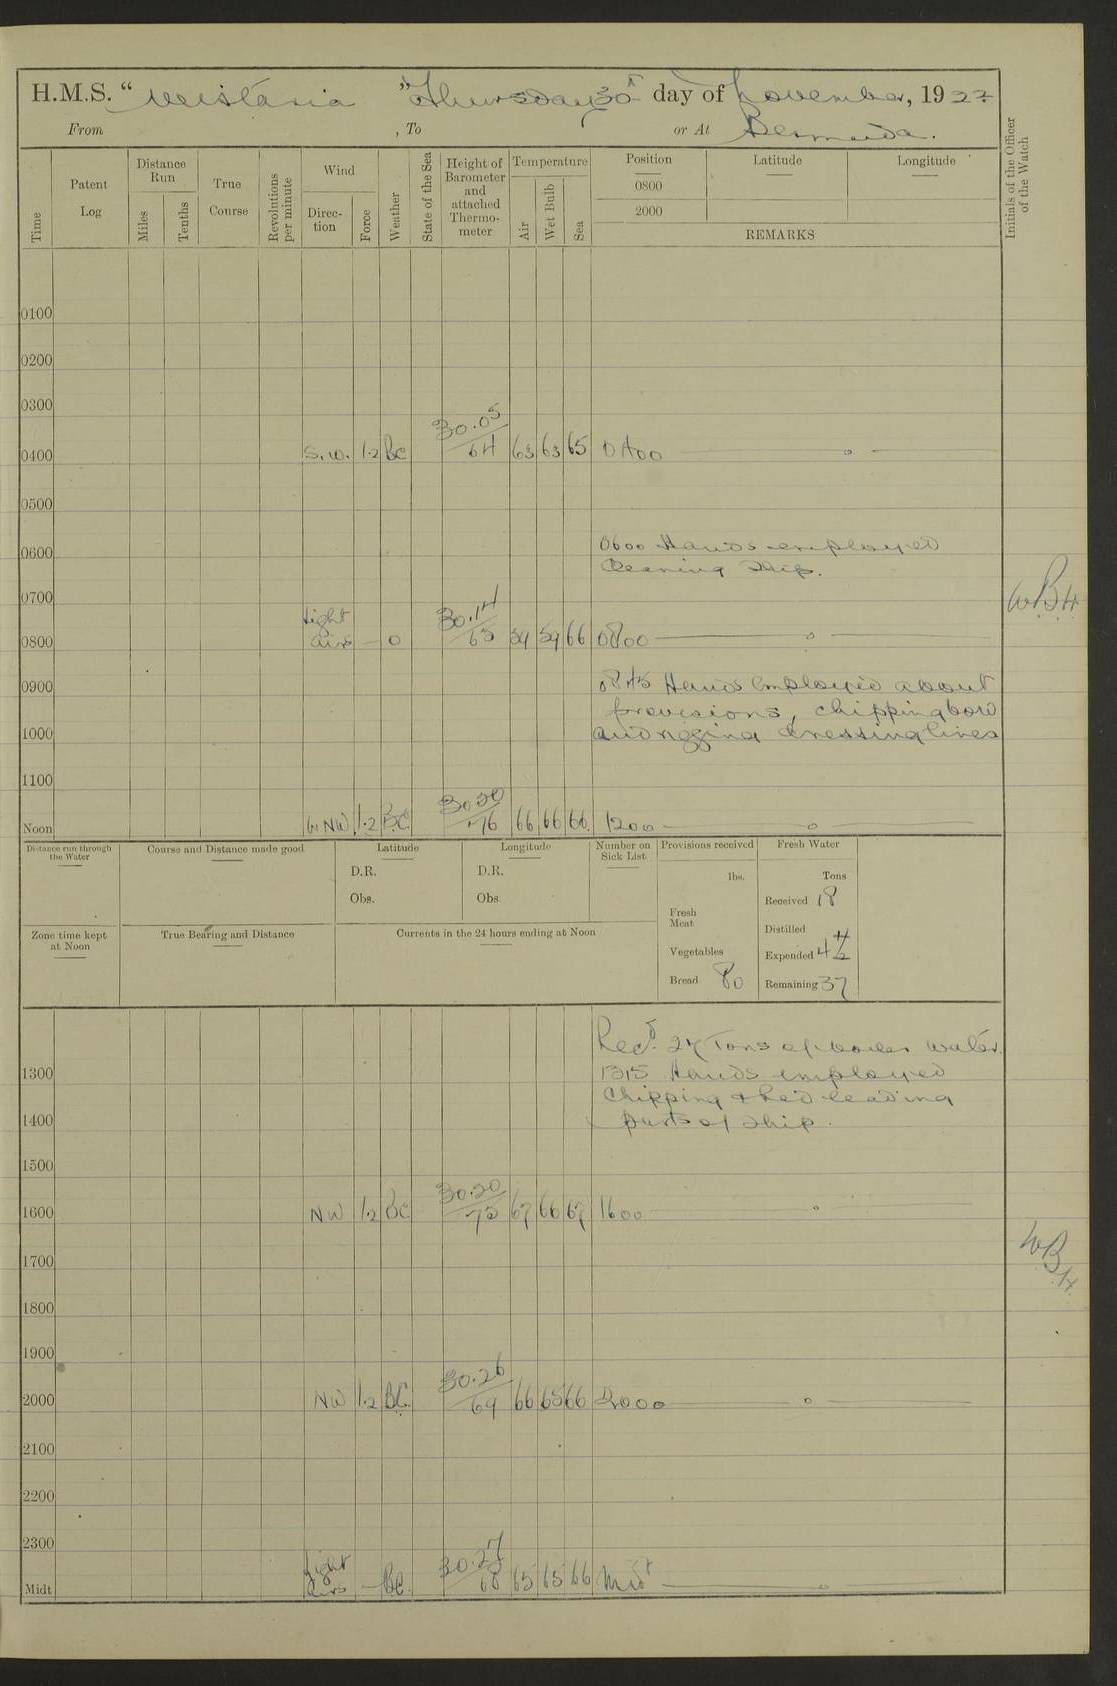 H.M.S. “Wistaria” Thursday 30th day of November, 1922
From , To or At Bermuda.
Time Patent Log Distance Run Miles Tenths True Course Revolutions per minute Wind Direc-tion Force Weather State of the Sea Height of Barometer and attached Thermo-meter Temperature Air Wet Bulb Sea Position 0800 2000 Latitude Longitude REMARKS Initials of the Officer of the Watch
0100
0200
0300
0400 S.W. 1.2 BC 30.05/64 63 63 65 0400 — " —
0500
0600 0600 Hands employed
cleaning ship.
0700 WBH
0800 Light airs — O 30.14/65 66 0800 — " —
0900 0845 Hands employed about
provisions, chipping bow
1000 and rigging dressing lines
1100
Noon WNW 1.2 BC 30.20/76 66 66 66 1200 — " —
Distance run through the Water Course and Distance made good Latitude Longitude Number on Sick List Provisions received Fresh Water
D.R. D.R. lbs. Tons
Obs. Obs. Received 18
Fresh Meat Distilled
Zone time kept at Noon True Bearing and Distance Currents in the 24 hours ending at Noon
Vegetables Expended
Bread 80 Remaining 37
Recd. Tons of boiler water.
1300 1315 Hands employed
Chipping & Red leading
1400 parts of ship.
1500
1600 NW 1.2 BC 30.20/72 67 66 67 1600 — " —
1700 WBH
1800
1900
2000 NW 1.2 BC 30.26/69 66 65 66 2000 — " —
2100
2200
2300
Midt Light airs — BC 30.27/68 65 65 66 Midt — " —